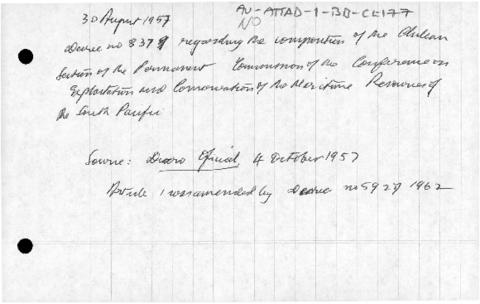 30 August 1957 AU-ATTAD-1-BD-CL177
NO
Decree no 837 regarding the composition of the Chilean
Section of the Permanent Commission of the Conference on
Exploitation and Conservation of the Maritime Resources of
the South Pacific
Source: Diario Oficial 4 October 1957
Article 1 was amended by Decree no 592 1962